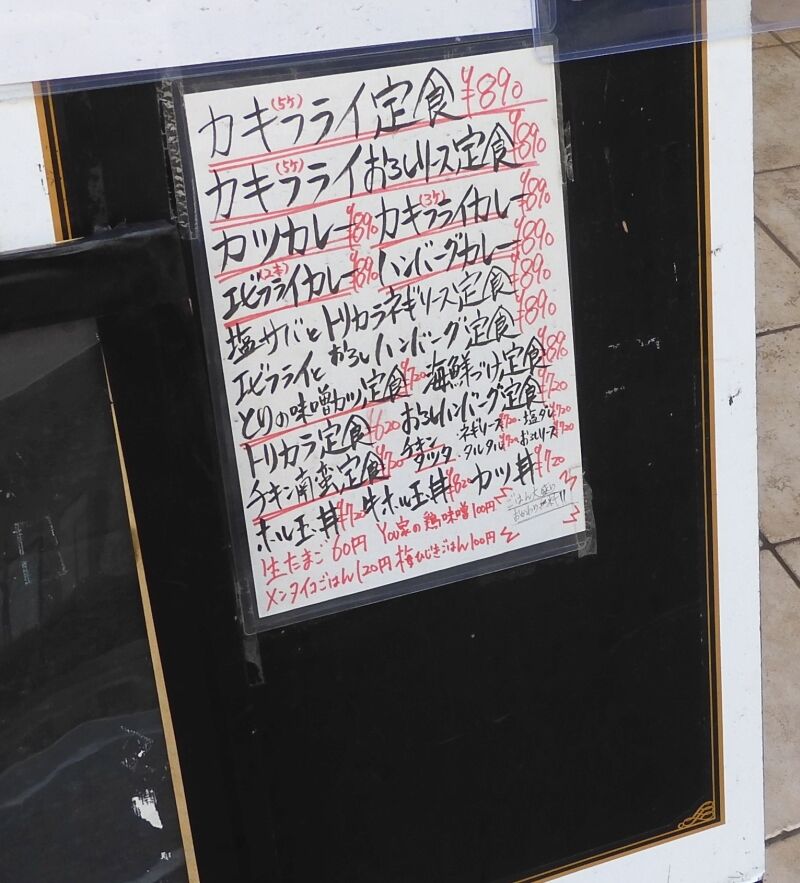 カキフライ(5ケ)定食 ¥890
カキフライ(5ケ)おろしソース定食 ¥890
カツカレー ¥890 カキフライカレー(3ケ) ¥890
エビフライカレー(2本) ¥890 ハンバーグカレー ¥890
塩サバとトリカラネギソース定食 ¥890
エビフライとおろしハンバーグ定食 ¥890
とりの味噌カツ定食 ¥720 海鮮づけ定食 ¥890
トリカラ定食 ¥620 おろしハンバーグ定食 ¥720
チキン南蛮定食 チキンタツタ ・ネギソース ¥720 ・塩ダレ ¥720
・タルタル ¥720 ・おろしソース ¥720
ホル玉丼 ¥720 牛ホル玉丼 ¥820 カツ丼 ¥720
生たまご 60円 You家の鶏味噌 100円
メンタイコごはん 120円 梅ひじきごはん 100円
ごはん大盛り
おかわり無料!!